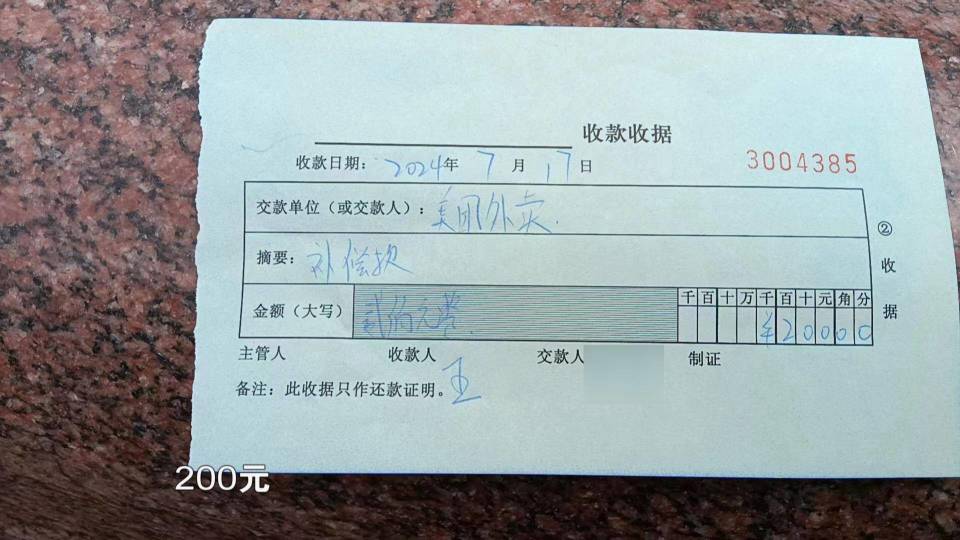 收款收据
收款日期：2024年 7月 17日
3004385
交款单位（或交款人）：美团外卖.
摘要：补偿款
千百十万千百十元角分
金额（大写）贰佰元整.
¥20000
主管人 收款人 王 交款人 制证
备注：此收据只作还款证明。
②收据
200元